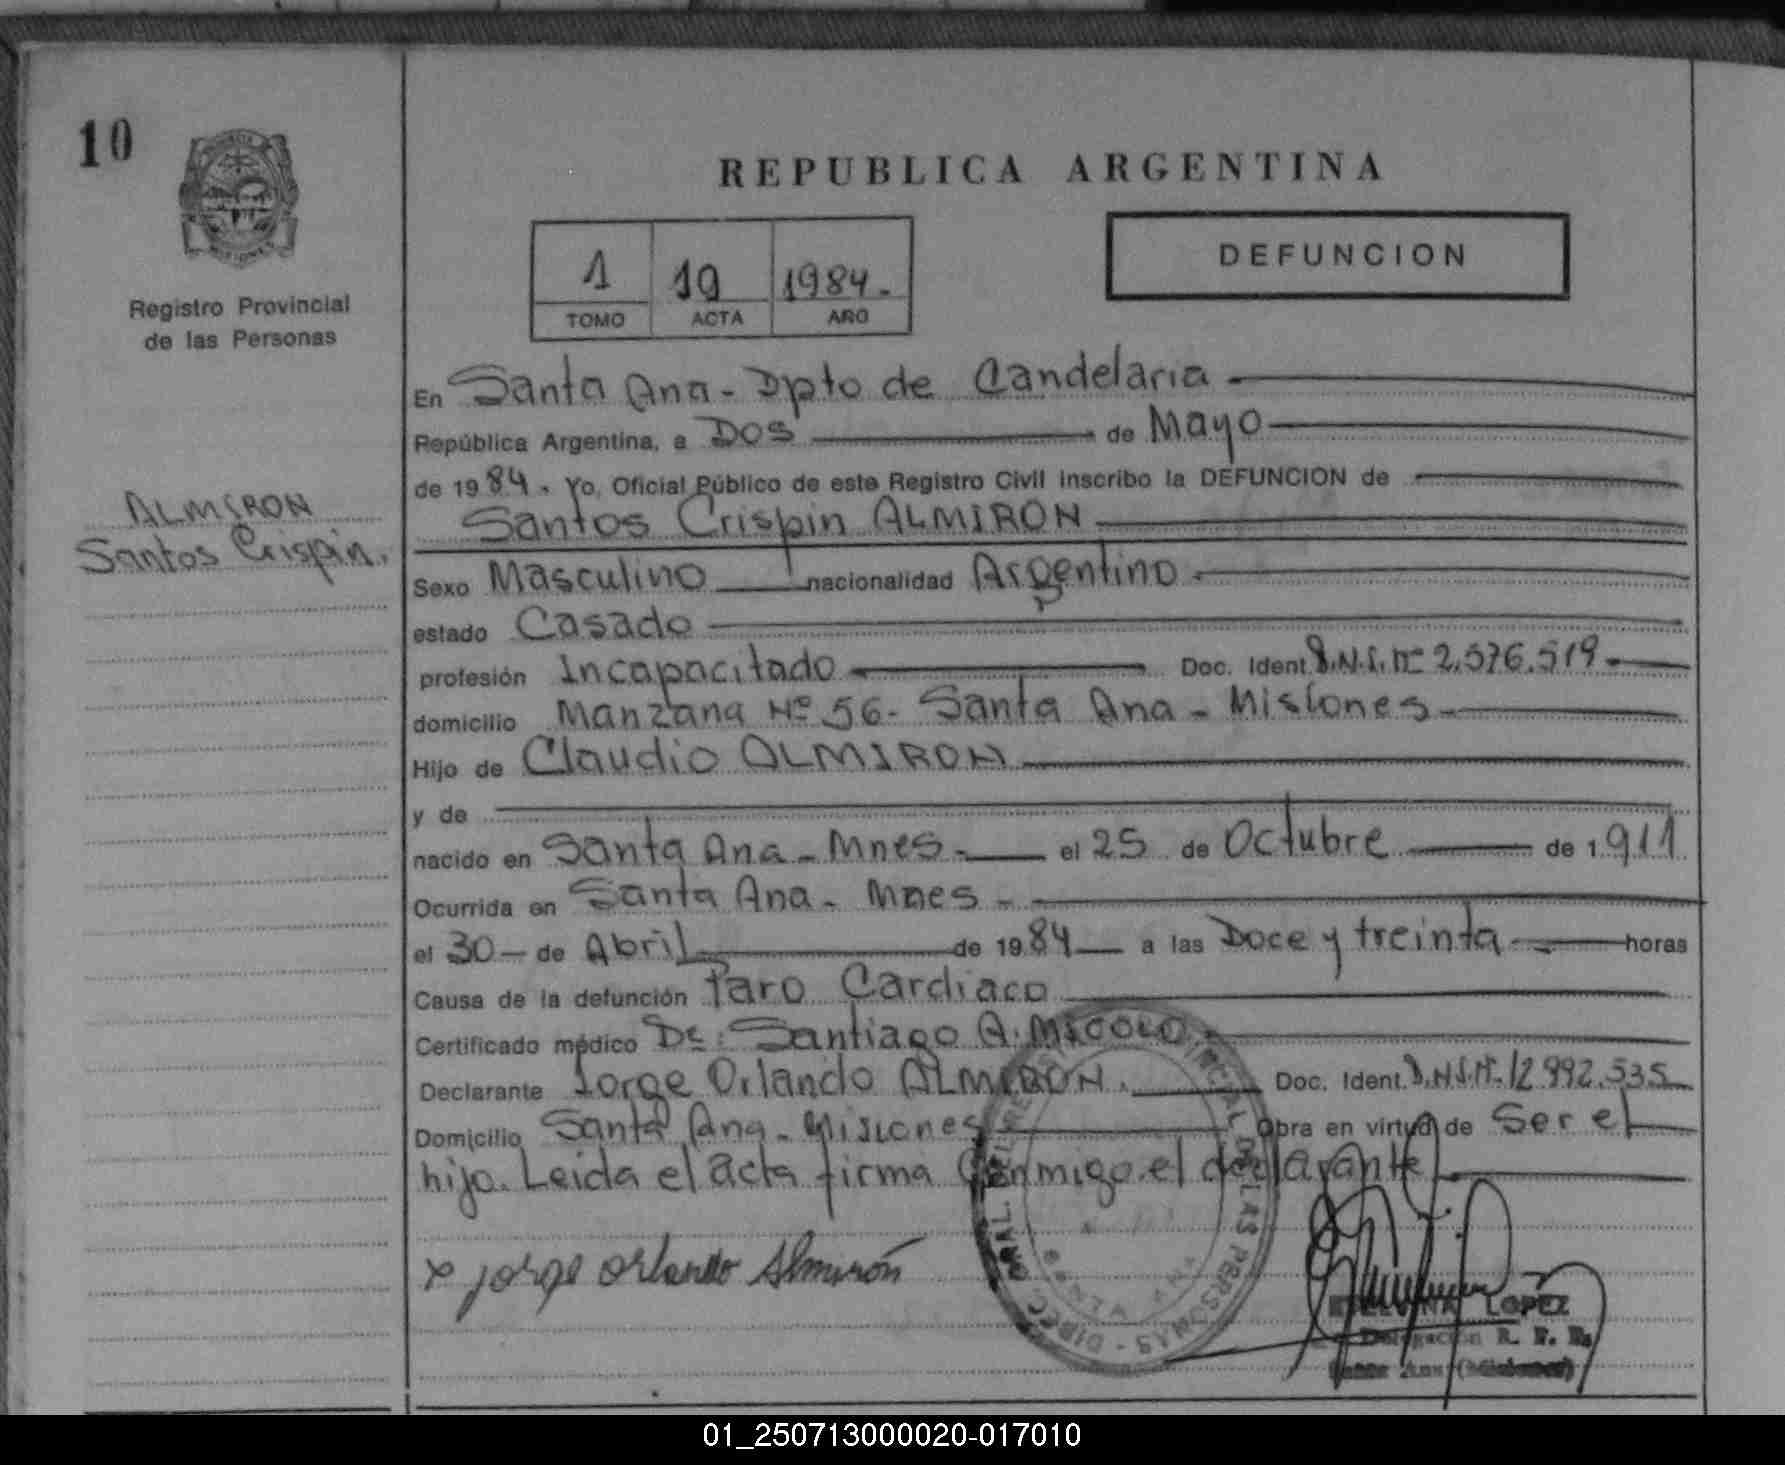 10
REPUBLICA ARGENTINA
DEFUNCION
1 10 1984.
TOMO ACTA AÑO
Registro Provincial
de las Personas
ALMIRON
Santos Crispin.
En Santa Ana - Dpto de Candelaria
República Argentina, a Dos de Mayo
de 1984. Yo, Oficial Público de este Registro Civil inscribo la DEFUNCION de
Santos Crispin ALMIRON
Sexo Masculino nacionalidad Argentino.
estado Casado
profesión Incapacitado Doc. Ident. D.N.I. Nº 2.576.519
domicilio Manzana Nº 56 - Santa Ana - Misiones
Hijo de Claudio ALMIRON
y de
nacido en Santa Ana - Mnes. el 25 de Octubre de 1911
Ocurrida en Santa Ana - Mnes
el 30 de Abril de 1984 a las Doce y treinta horas
Causa de la defunción Paro Cardiaco
Certificado médico Dr: Santiago A. MICOLO
Declarante Jorge Orlando ALMIRON. Doc. Ident. D.N.I. Nº 12.992.535
Domicilio Santa Ana - Misiones Obra en virtud de Ser el
hijo. Leida el acta firma Conmigo el declarante
x Jorge Orlando Almirón
DIREC. GRAL. DEL REGISTRO PROVINCIAL DE LAS PERSONAS
LOPEZ
Delegación R. P. P.
Santa Ana (Misiones)
01_250713000020-017010